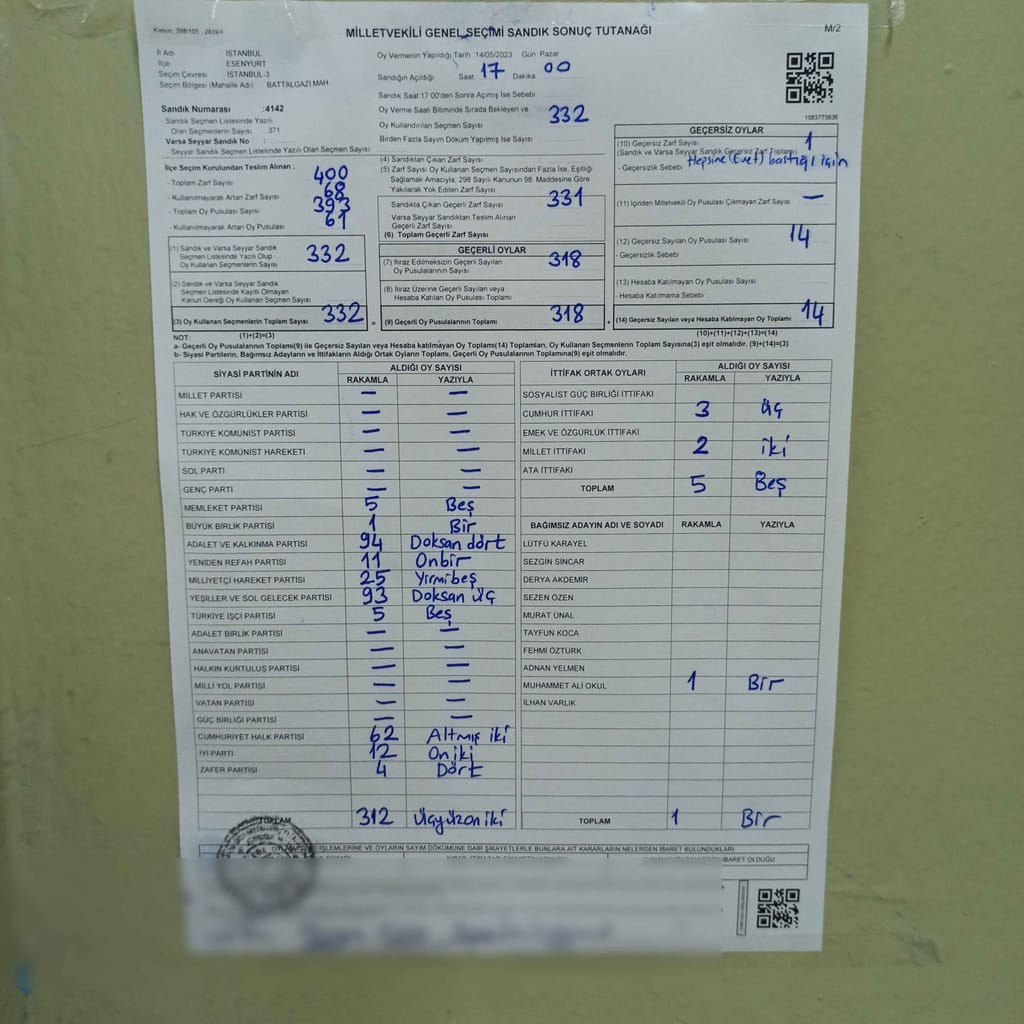 Kanun: 298/105 , 2839/4
MİLLETVEKİLİ GENEL SEÇİMİ SANDIK SONUÇ TUTANAĞI
M/2
İl Adı İSTANBUL
İlçe ESENYURT
Seçim Çevresi İSTANBUL-3
Seçim Bölgesi (Mahalle Adı) BATTALGAZİ MAH
Oy Vermenin Yapıldığı Tarih 14/05/2023 Gün: Pazar
Sandığın Açıldığı Saat 17 Dakika 00
Sandık Saat 17:00'den Sonra Açımış İse Sebebi
Oy Verme Saati Bitiminde Sırada Bekleyen ve
Oy Kullandırılan Seçmen Sayısı 332
Birden Fazla Sayım Döküm Yapılmış İse Sayısı
1083775836
Sandık Numarası :4142
- Sandık Seçmen Listesinde Yazılı
Olan Seçmenlerin Sayısı 371
Varsa Seyyar Sandık No :
- Seyyar Sandık Seçmen Listesinde Yazılı Olan Seçmen Sayısı:
İlçe Seçim Kurulundan Teslim Alınan ;
- Toplam Zarf Sayısı 400
- Kullanılmayarak Artan Zarf Sayısı 68
- Toplam Oy Pusulası Sayısı 393
- Kullanılmayarak Artan Oy Pusulası 61
(1) Sandık ve Varsa Seyyar Sandık
Seçmen Listesinde Yazılı Olup
Oy Kullanan Seçmenlerin Sayısı 332
(2) Sandık ve Varsa Seyyar Sandık
Seçmen Listesinde Kaydı Olmayan
Kanun Gereği Oy Kullanan Seçmen Sayısı
(3) Oy Kullanan Seçmenlerin Toplam Sayısı 332
(1)+(2)=(3)
(4) Sandıktan Çıkan Zarf Sayısı
(5) Zarf Sayısı Oy Kullanan Seçmen Sayısından Fazla İse, Eşitliği
Sağlamak Amacıyla, 298 Sayılı Kanunun 98. Maddesine Göre
Yakılarak Yok Edilen Zarf Sayısı
Sandıkta Çıkan Geçerli Zarf Sayısı 331
Varsa Seyyar Sandıktan Teslim Alınan
Geçerli Zarf Sayısı
(6) Toplam Geçerli Zarf Sayısı
GEÇERLİ OYLAR
(7) İtiraz Edilmeksizin Geçerli Sayılan
Oy Pusulalarının Sayısı 318
(8) İtiraz Üzerine Geçerli Sayılan veya
Hesaba Katılan Oy Pusulası Toplamı
= (9) Geçerli Oy Pusulalarının Toplamı 318 +
GEÇERSİZ OYLAR
(10) Geçersiz Zarf Sayısı 1
(Sandık ve Varsa Seyyar Sandık Geçersiz Zarf Toplamı)
- Geçersizlik Sebebi Hepsine (Evet) bastığı için
(11) İçinden Milletvekili Oy Pusulası Çıkmayan Zarf Sayısı —
(12) Geçersiz Sayılan Oy Pusulası Sayısı 14
- Geçersizlik Sebebi
(13) Hesaba Katılmayan Oy Pusulası Sayısı
- Hesaba Katılmama Sebebi
(14) Geçersiz Sayılan veya Hesaba Katılmayan Oy Toplamı 14
(10)+(11)+(12)+(13)=(14)
NOT:
a- Geçerli Oy Pusulalarının Toplamı(9) ile Geçersiz Sayılan veya Hesaba katılmayan Oy Toplamı(14) Toplamları, Oy Kullanan Seçmenlerin Toplam Sayısına(3) eşit olmalıdır. (9)+(14)=(3)
b- Siyasi Partilerin, Bağımsız Adayların ve İttifakların Aldığı Ortak Oyların Toplamı, Geçerli Oy Pusulalarının Toplamına(9) eşit olmalıdır.
SİYASİ PARTİNİN ADI ALDIĞI OY SAYISI
RAKAMLA YAZIYLA
MİLLET PARTİSİ — —
HAK VE ÖZGÜRLÜKLER PARTİSİ — —
TÜRKİYE KOMÜNİST PARTİSİ — —
TÜRKİYE KOMÜNİST HAREKETİ — —
SOL PARTİ — —
GENÇ PARTİ — —
MEMLEKET PARTİSİ 5 Beş
BÜYÜK BİRLİK PARTİSİ 1 Bir
ADALET VE KALKINMA PARTİSİ 94 Doksan dört
YENİDEN REFAH PARTİSİ 11 Onbir
MİLLİYETÇİ HAREKET PARTİSİ 25 Yirmibeş
YEŞİLLER VE SOL GELECEK PARTİSİ 93 Doksan üç
TÜRKİYE İŞÇİ PARTİSİ 5 Beş
ADALET BİRLİK PARTİSİ — —
ANAVATAN PARTİSİ — —
HALKIN KURTULUŞ PARTİSİ — —
MİLLİ YOL PARTİSİ — —
VATAN PARTİSİ — —
GÜÇ BİRLİĞİ PARTİSİ — —
CUMHURİYET HALK PARTİSİ 62 Altmış iki
İYİ PARTİ 12 On iki
ZAFER PARTİSİ 4 Dört
TOPLAM 312 Üçyüzoniki
İTTİFAK ORTAK OYLARI ALDIĞI OY SAYISI
RAKAMLA YAZIYLA
SOSYALİST GÜÇ BİRLİĞİ İTTİFAKI
CUMHUR İTTİFAKI 3 üç
EMEK VE ÖZGÜRLÜK İTTİFAKI
MİLLET İTTİFAKI 2 iki
ATA İTTİFAKI
TOPLAM 5 Beş
BAĞIMSIZ ADAYIN ADI VE SOYADI RAKAMLA YAZIYLA
LÜTFÜ KARAYEL
SEZGİN SİNCAR
DERYA AKDEMİR
SEZEN ÖZEN
MURAT ÜNAL
TAYFUN KOCA
FEHMİ ÖZTÜRK
ADNAN YELMEN
MUHAMMET ALİ OKUL 1 Bir
İLHAN VARLIK
TOPLAM 1 Bir
İŞLEMLERİNE VE OYLARIN SAYIM DÖKÜMÜNE DAİR ŞİKAYETLERLE BUNLARA AİT KARARLARIN NELERDEN İBARET BULUNDUKLARI
İBARET OLDUĞU